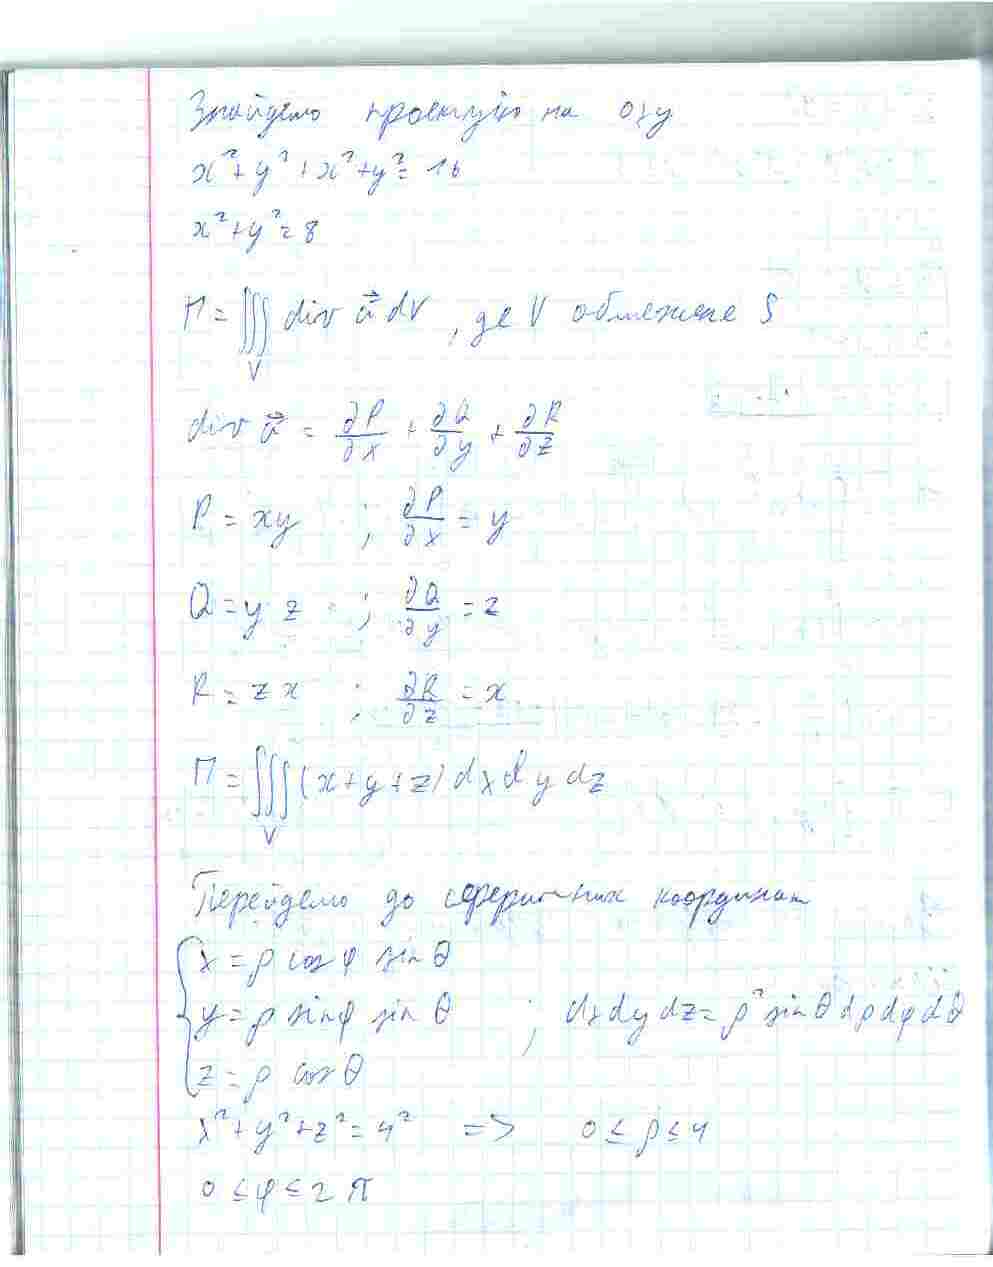 Знайдемо проекцію на oxy
x² + y² + x² + y² = 16
x² + y² = 8
П = ∭_V div a⃗ dV , де V обмежене S
div a⃗ = ∂P/∂x + ∂Q/∂y + ∂R/∂z
P = xy ; ∂P/∂x = y
Q = y z ; ∂Q/∂y = z
R = z x ; ∂R/∂z = x
П = ∭_V (x + y + z) dx dy dz
Перейдемо до сферичних координат
{ x = ρ cos φ sin θ
y = ρ sin φ sin θ ; dx dy dz = ρ² sin θ dρ dφ dθ
z = ρ cos θ
x² + y² + z² = 4² => 0 ≤ ρ ≤ 4
0 ≤ φ ≤ 2 π